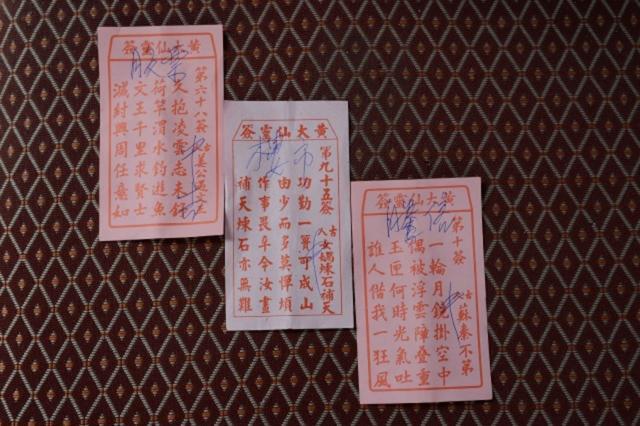 黃大仙靈簽
第六十八簽
古人姜公遇文王
久抱凌雲志未舒
荷竿渭水釣遊魚
文王千里求賢士
滅紂興周任意如
黃大仙靈簽
第九十五簽
古人女媧煉石補天
功勤一簣可成山
由少而多莫憚煩
作事畏今汝畫
補天煉石亦無難
黃大仙靈簽
第十簽
古蘇秦不第
一輪月鏡掛空中
偶被浮雲障叠重
玉匣何時光氣吐
誰人借我一狂風